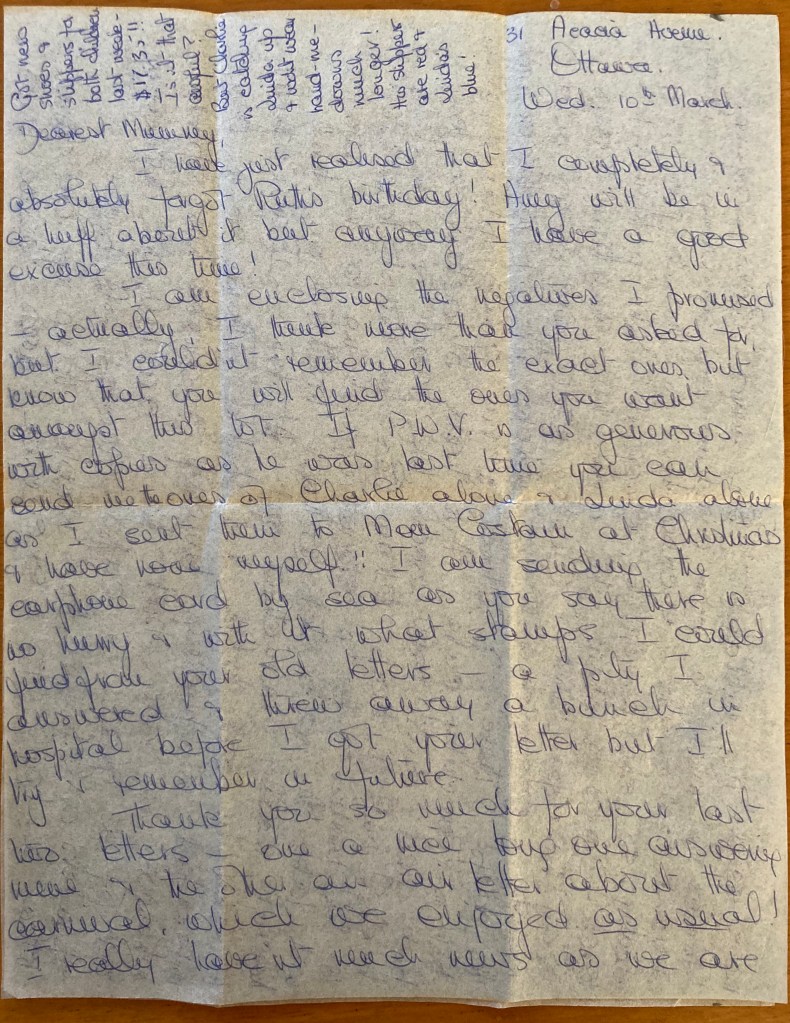 31 Acacia Avenue.
Ottawa.
Wed. 10th March.
Dearest Mummy,
I have just realised that I completely &
absolutely forgot Ruth's birthday! Amy will be in
a huff about it but anyway I have a good
excuse this time!
I am enclosing the negatives I promised
- actually, I think more than you asked for,
but I couldn't remember the exact ones, but
know that you will find the ones you want
amongst this lot. If P.W.V. is as generous
with copies as he was last time you can
send me the ones of Charlie alone & Linda alone
as I sent them to Mom Costain at Christmas
& have none myself!! I am sending the
earphone cord by sea as you say there is
no hurry & with it what stamps I could
find from your old letters - a pity I
answered & threw away a bunch in
hospital before I got your letter but I'll
try & remember in future.
Thank you so much for your last
two letters - one a nice long one answering
mine & the other an air letter about the
carnival, which we enjoyed as usual!
I really haven't much news as we are
Got new
shoes &
slippers for
both children
last week -
$17.35!!
Isn't that
awful?
But Charlie
is catching
Linda up
& won't wear
hand-me-
downs
much
longer!
His slippers
are red &
Linda's
blue!